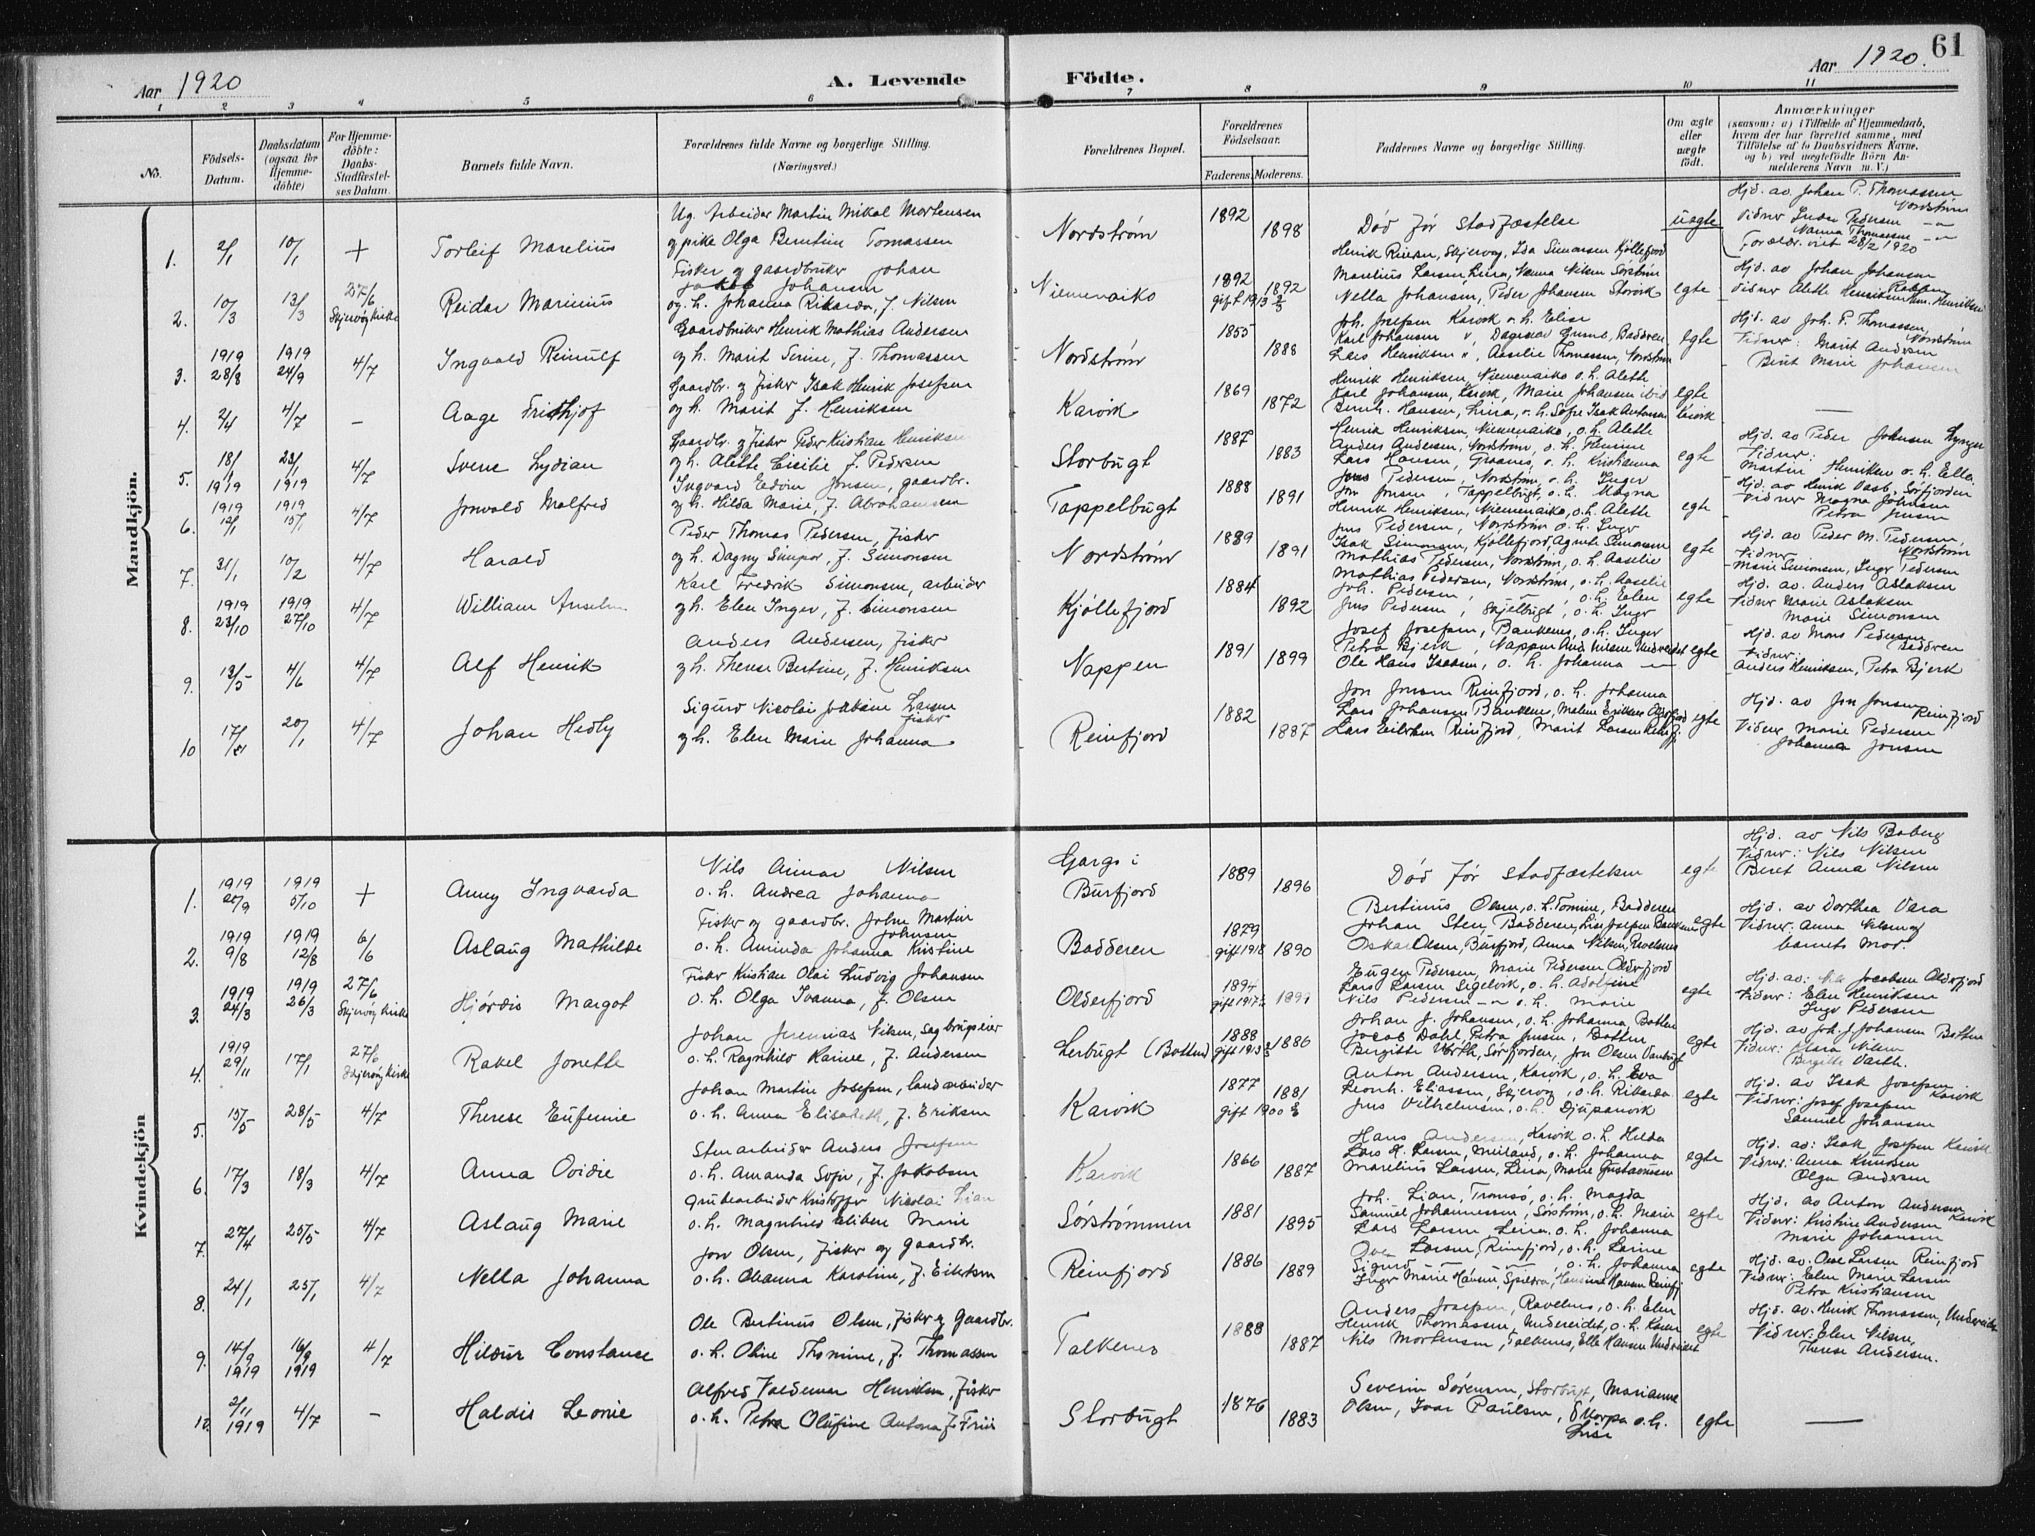 61
Aar 1920
A. Levende Födte.
Aar 1920.
1 2 3 4 5 6 7 8 9 10 11
No.
Födsels-Datum.
Daabsdatum (ogsaa for Hjemmedöbte)
For Hjemmedöbte: Daabs-Stadfæstelses Datum.
Barnets fulde Navn.
Forældrenes fulde Navne og borgerlige Stilling.
(Næringsvei.)
Forældrenes Bopæl.
Forældrenes Födselsaar.
Faderens. Moderens.
Faddernes Navne og borgerlige Stilling.
Om ægte eller uægte født.
Anmærkninger
(saasom: a) i Tilfælde af Hjemmedaab,
hvem der har forrettet samme, med
Tilföielse af to Daabsvidners Navne.
og b) ved uegtefödte Börn An-
melderens Navn m. V.)
Mandkjön.
1. 2/1 10/1 + Torleif Marelius
Ug. Arbeider Martin Mikal Mortensen
og pike Olga Berntine Tomassen
Nordstrøm 1892 1898 Død før Stadfæstelse uegte
Hjd. av Johan P. Thomassen
Nordstrøm
Vidner Pedersen
Nanna Thomassen
Forældr. viet 28/2 1920
2. 10/3 13/3 27/6 Skjervøy kirke Reidar Marinius
Fisker og gaardbruker Johan
Johansen
og h. Johanna Rikarda, f. Nilsen
Niemenaiko 1892 gift 1913 1892
Marelius Larsen, Leira, Nanna Nilsen Sørstrøm
Nella Johansen, Peder Johansen Storvik egte
Hjd. av Johan Johansen
Vidner Alette Henriksen
3. 1919 28/8 1919 24/9 4/7 Ingvald Reinulf
Gaardbruker Henrik Mathias Andersen
og h. Marit Serine, f. Thomassen
Nordstrøm 1855 1888
Joh. Josefsen Karvik o.h. Elise
Lars Henriksen Aaselie Thomassen, Nordstrøm egte
Hjd. av Joh. P. Thomassen,
Nordstrøm
Vidner: Marit Andersen
Berit Marie Johansen
4. 2/4 4/7 - Aage Fridthjof
Gaardbr. og fisker Isak Henrik Josefsen
og h. Marit f. Henriksen
Karvik 1869 1872
Henrik Henriksen, Niemenaiko o.h. Alette
Karl Johansen, Karvik, Marie Johansen ibid
Bernh. Hansen, Leira, o.h. Sofie Isak Antonsen Karvik egte
5. 18/1 1919 23/1 1919 4/7 Svene Lydian
Gaardbr. og fisker Peder Kristian Henriksen
og h. Alette Cicilie f. Pedersen
Storbugt 1887 1883
Henrik Henriksen, Niemenaiko, o.h. Alette
Anders Andersen, Nordstrøm, o.h.
Lars Hansen, o.h. Kristianna egte
Hjd. av Peder Johnsen Lyngen
Vidner:
Martin Henriksen o.h. Ellen
6. 1919 12/1 1919 15/1 4/7 Jonvald Malfred
Ingvard Edvin Jonsen, gaardbr.
og h. Hilda Marie, f. Abrahamsen
Tappelbugt 1888 1891
Jens Pedersen Nordstrøm o.h. Inger
Jon Jonsen, Tappelbugt, o.h. Magna
Henrik Henriksen, Niemenaiko, o.h. Alette egte
Hjd. av Henrik Sørfjorden
Vidner Magna Johnsen
Petra Jensen
7. 31/1 10/2 4/7 Harald
Peder Thomas Pedersen, fisker
og h. Dagny f. Simonsen
Nordstrøm 1889 1891
Jens Pedersen, Nordstrøm o.h. Inger
Isak Simonsen, Kjøllefjord, Agnete Simonsen
Mathias Pedersen, Nordstrøm, o.h. Aaselie egte
Hjd. av Peder M. Pedersen,
Nordstrøm
Vidner
Marie Simonsen, Inger Pedersen
8. 1919 23/10 1919 27/10 4/7 William Anselm
Karl Fredrik Simonsen, arbeider
og h. Elen Inger, f. Simonsen
Kjøllefjord 1884 1892
Mathias Pedersen, Nordstrøm, o.h. Aaselie
Joh. Pedersen, o.h. Elen
Jens Pedersen, Skjelbugt, o.h. Inger egte
Hjd. av. Anders Aslaksen
Vidner Marie Aslaksen
Marie Simonsen
9. 13/5 4/6 4/7 Alf Henrik
Anders Andersen, fisker
og h. Therese Bertine, f. Henriksen
Nappen 1891 1899
Josef Josefsen, Bankenes, o.h. Inger
Petra Bjerk, Nappen And. Nilsen Undereidet
Ole Hans Isaksen, o.h. Johanna egte
Hjd. av Mons Pedersen
Badderen
Vidner:
Anders Henriksen, Petra Bjerk
10 17/1 20/1 4/7 Johan Hedly
Sigurd Nicolai Johan Larsen
fisker
og h. Elen Marie Johanna
Reinfjord 1882 1887
Jon Jonsen Reinfjord, o.h. Johanna
Lars Johansen Bankenes, Malene Eriksen Olderfjord
Lars Eilertsen Reinfjord, Marit Larsen Reinfj. egte
Hjd. av Jon Jonsen
Reinfjord
Vidner Marie Pedersen
Johanna Jonsen
Kvindekjön
1. 1919 20/9 1919 5/10 + Anny Ingvarda
Nils Ainar Nilsen
o.h. Andrea Johanna
Gargo i Burfjord 1889 1896 Død før Stadfæstelsen egte
Hjd. av Nils Boberg
Vidner: Nils Nilsen
Beret Anna Nilsen
2. 1919 9/8 1919 12/8 6/6 Aslaug Mathilde
Fisker og gaardbr. Johan Martin
Johnsen
o.h. Aminda Johanna Kristine
Badderen 1879 gift 1918 1890
Bertinus Olsen, o.h. Tomine, Badderen
Johan Sten, Badderen, Lise Josefsen
Oskar Olsen, Burfjord, Anna Nilsen, egte
Hjd. av Dorthea Vara
Vidner: Anna Nilsen og
barnets Mor.
3. 1919 24/3 1919 26/3 27/6 Skjervøy kirke Hjørdis Margot
Fisker Kristian Olai Ludvig Johansen
o.h. Olga Ivanna, f. Olsen
Olderfjord 1894 gift 1917
Eugen Pedersen, Marie Pedersen Olderfjord
Lars Larsen Sigelvik, o.h. Adolfine
Nils Pedersen o.h. Marie egte
Hjd. av: Jacobsen Olderfjord
Vidner: Elen Henriksen
Inger Pedersen
4. 1919 29/11 17/1 27/6 Skjervøy kirke Rakel Jonette
Johan Jeremias Nilsen, sagbrugseier
o.h. Ragnhild Karine, f. Andersen
Lerbugt (Botten) 1888 gift 1913 1886
Johan J. Johansen, o.h. Johanna Botten
Jacob Dahl, Petra Jensen, Botten
Birgitte Varth, Sørfjorden, Jon Olsen egte
Hjd. av Joh. J Johansen Botten
Vidner: Nilsen
Birgitte Varth.
5. 15/5 28/5 4/7 Therese Eufemie
Johan Martin Josefsen, landarbeider
o.h. Anna Elisabeth, f. Eriksen
Karvik 1877 gift 1900 1881
Anton Andersen, Karvik, o.h. Eva
Leonh. Eliassen, Skjervøy, o.h. Rikarda
Jens Vilhelmsen, o.h. Djupanvik egte
Hjd. av Isak Josefsen
Karvik
Vidner: Josef Josefsen
Samuel Johansen
6. 17/3 18/3 4/7 Anna Ovidie
Stenarbeider Anders Josefsen
o.h. Amanda Sofie, f. Jakobsen
Karvik 1866 1887
Hans Andersen, Karvik o.h. Hilda
Lars H. Larsen, Meiland, o.h. Johanna
Marelius Larsen, Leira, Marie Gustavsen egte
Hjd. av: Isak Josefsen Karvik
Vidner: Anna Knudsen
Olga Andersen
7. 27/4 25/5 4/7 Aslaug Marie
Grubearbeider Kristoffer Nicolai Lian
o.h. Magnhild Elibere Marie
Sørstrømmen 1881 1895
Joh. Lian, Tromsö, o.h. Magda
Samuel Johannessen, Sørstrøm, o.h. Marie
Lars Larsen Leira, o.h. Johanna egte
Hjd. av Anton Andersen
Karvik
Vidner: Kristine Andersen
Marie Johansen
8. 24/1 25/1 4/7 Nella Johanna
Jon Olsen, fisker og gaardbr.
o.h. Olianna Karoline, f. Eilertsen
Reinfjord 1886 1889
Larsen, Reinfjord, o.h. Larine
Sigurd o.h. Johanna
Inger Marie Hansen, Spildra, Hansine Hansen Reinfj. egte
Hjd. av. Ove Larsen Reinfjord
Vidner: Elen Marie Larsen
Petra Kristiansen
9. 14/9 1919 16/9 1919 4/7 Hildur Constanse
Ole Bertinus Olsen, fisker og gaardbr.
o.h. Oline Thomine, f. Thomassen
Talkenes 1888 1887
Anders Josefsen, Ravelnes, o.h. Elen
Henrik Thomassen, Undereidet, o.h. Karen
Nils Mortensen, Talkenes, Elle Hansen Undereidet egte
Hjd. av. Henrik Thomassen, Undereidet
Vidner: Elen Nilsen,
Therese Andersen.
10. 2/11 1919 4/7 - Haldis Leonie
Alfred Valdemar Henriksen, fisker
o.h. Petra Olufine Antona f. Friis
Storbugt 1876 1883
Severin Sørensen, Storbugt, Marianne
Olsen, Ivar Paulsen, Skorpa o.h.
Lise egte